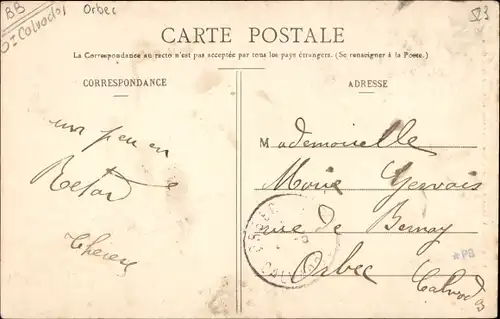 BB
Orbec
Calvados
CARTE POSTALE
La Correspondance au recto n'est pas acceptée par tous les pays étrangers. (Se renseigner à la Poste.)
CORRESPONDANCE
ADRESSE
un peu en
Retard
Therese
Mademoiselle
Marie Gervais
rue de Bernay
Orbec
Calvados
ORBEC
CALVADOS
*PB